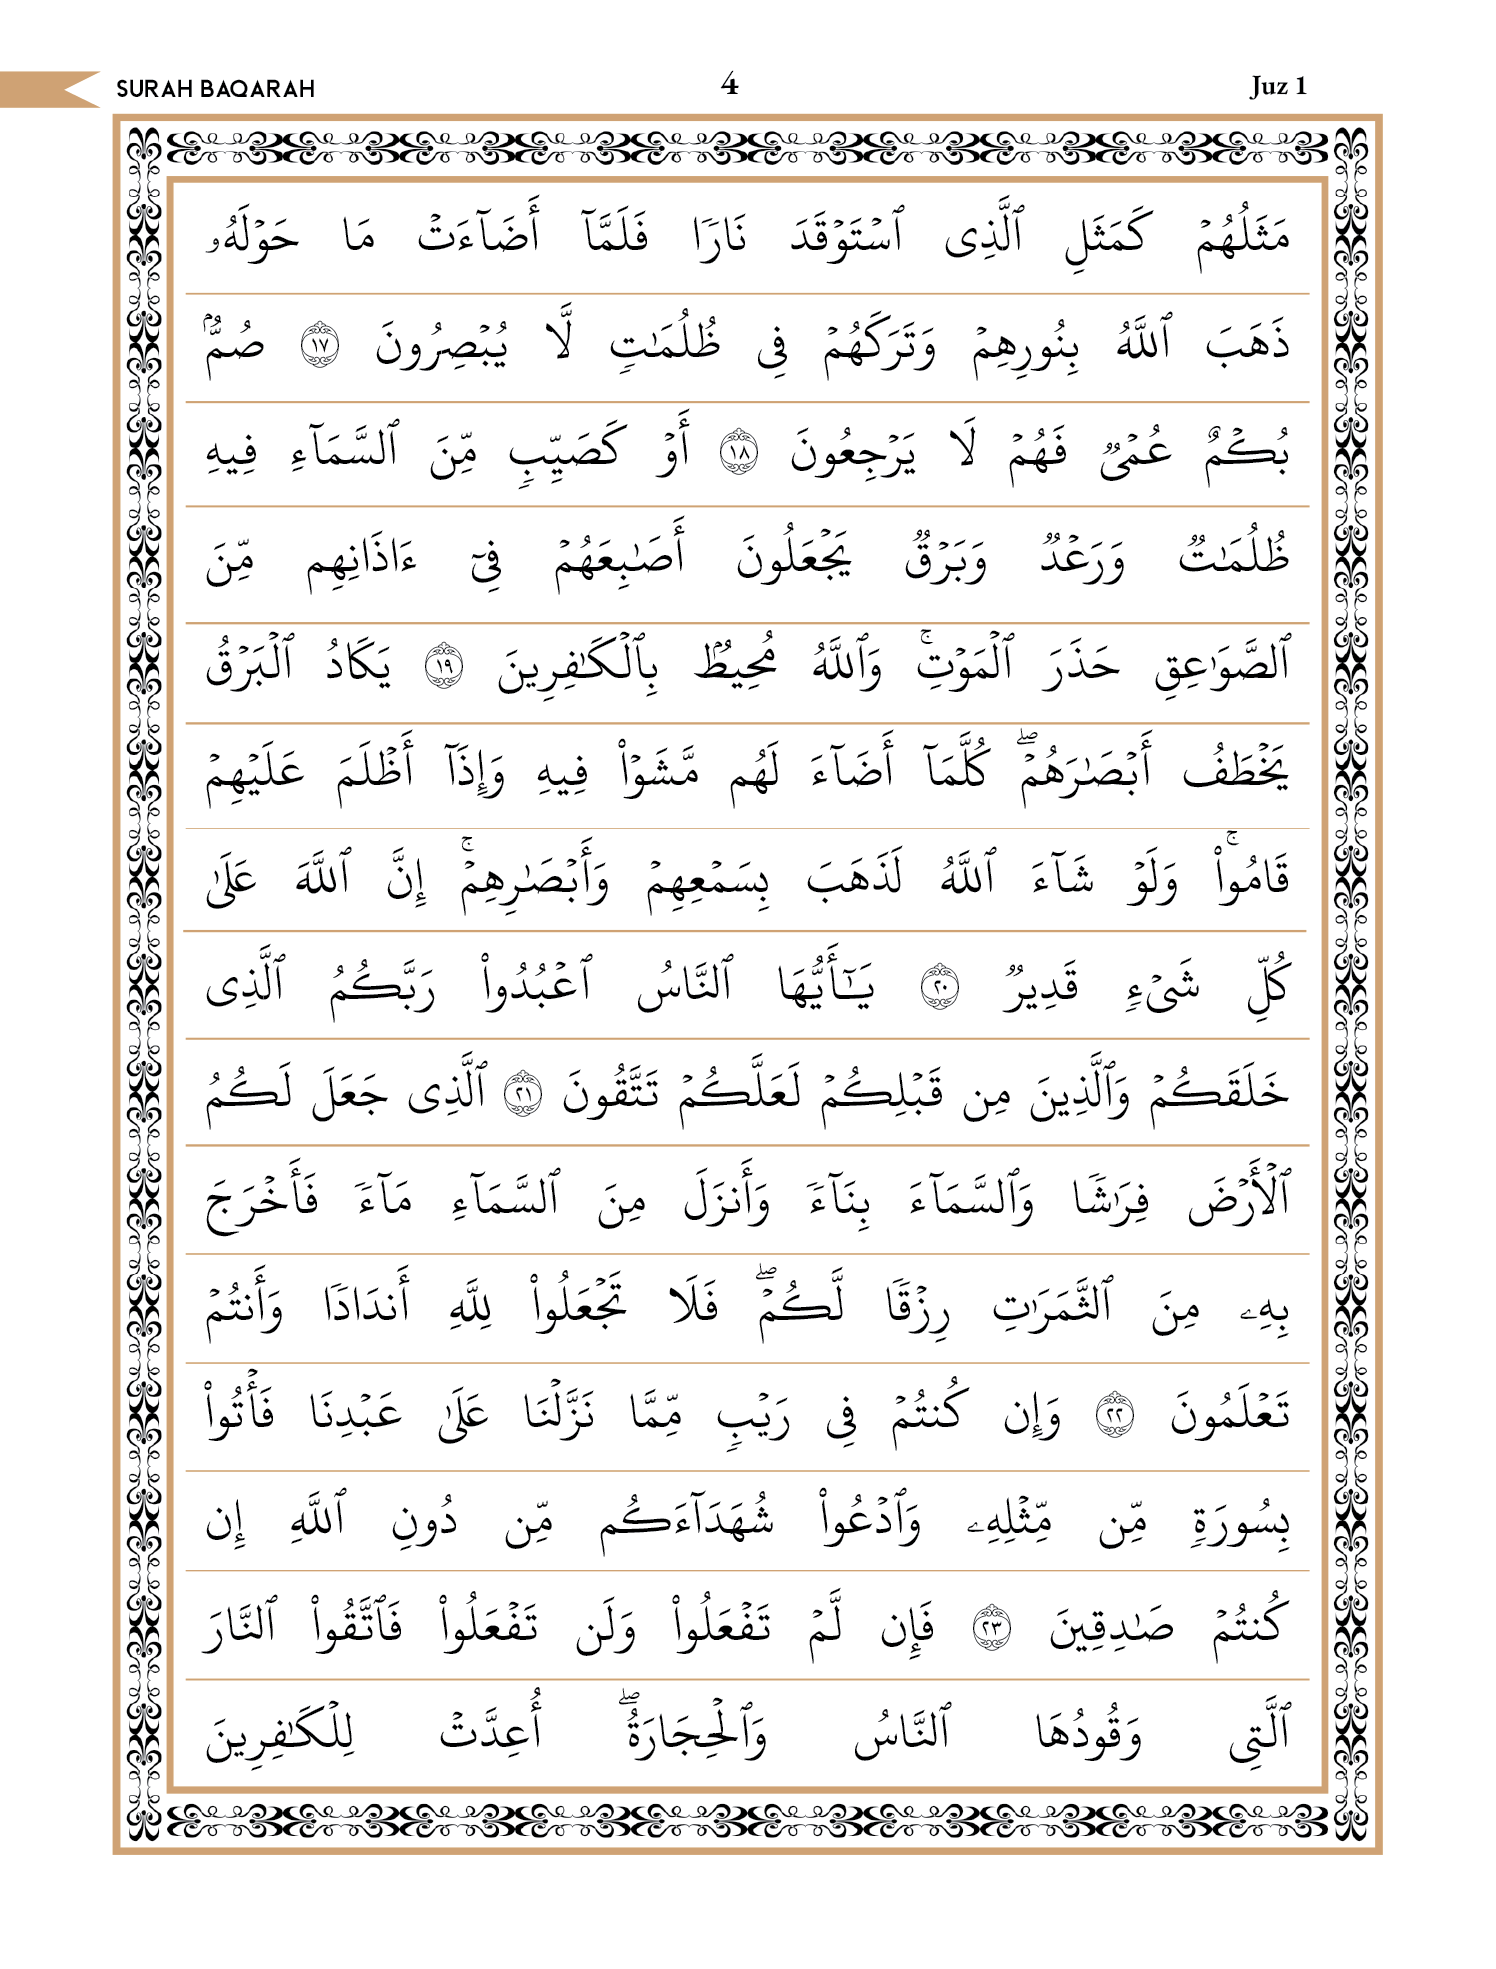 SURAH BAQARAH 4 Juz 1
مَثَلُهُمۡ كَمَثَلِ ٱلَّذِى ٱسۡتَوۡقَدَ نَارٗا فَلَمَّآ أَضَآءَتۡ مَا حَوۡلَهُۥ
ذَهَبَ ٱللَّهُ بِنُورِهِمۡ وَتَرَكَهُمۡ فِى ظُلُمَٰتٖ لَّا يُبۡصِرُونَ ١٧ صُمُّۢ
بُكۡمٌ عُمۡىٞ فَهُمۡ لَا يَرۡجِعُونَ ١٨ أَوۡ كَصَيِّبٖ مِّنَ ٱلسَّمَآءِ فِيهِ
ظُلُمَٰتٞ وَرَعۡدٞ وَبَرۡقٞ يَجۡعَلُونَ أَصَٰبِعَهُمۡ فِىٓ ءَاذَانِهِم مِّنَ
ٱلصَّوَٰعِقِ حَذَرَ ٱلۡمَوۡتِۚ وَٱللَّهُ مُحِيطُۢ بِٱلۡكَٰفِرِينَ ١٩ يَكَادُ ٱلۡبَرۡقُ
يَخۡطَفُ أَبۡصَٰرَهُمۡۖ كُلَّمَآ أَضَآءَ لَهُم مَّشَوۡاْ فِيهِ وَإِذَآ أَظۡلَمَ عَلَيۡهِمۡ
قَامُواْۚ وَلَوۡ شَآءَ ٱللَّهُ لَذَهَبَ بِسَمۡعِهِمۡ وَأَبۡصَٰرِهِمۡۚ إِنَّ ٱللَّهَ عَلَىٰ
كُلِّ شَىۡءٖ قَدِيرٞ ٢٠ يَٰٓأَيُّهَا ٱلنَّاسُ ٱعۡبُدُواْ رَبَّكُمُ ٱلَّذِى
خَلَقَكُمۡ وَٱلَّذِينَ مِن قَبۡلِكُمۡ لَعَلَّكُمۡ تَتَّقُونَ ٢١ ٱلَّذِى جَعَلَ لَكُمُ
ٱلۡأَرۡضَ فِرَٰشٗا وَٱلسَّمَآءَ بِنَآءٗ وَأَنزَلَ مِنَ ٱلسَّمَآءِ مَآءٗ فَأَخۡرَجَ
بِهِۦ مِنَ ٱلثَّمَرَٰتِ رِزۡقٗا لَّكُمۡۖ فَلَا تَجۡعَلُواْ لِلَّهِ أَندَادٗا وَأَنتُمۡ
تَعۡلَمُونَ ٢٢ وَإِن كُنتُمۡ فِى رَيۡبٖ مِّمَّا نَزَّلۡنَا عَلَىٰ عَبۡدِنَا فَأۡتُواْ
بِسُورَةٖ مِّن مِّثۡلِهِۦ وَٱدۡعُواْ شُهَدَآءَكُم مِّن دُونِ ٱللَّهِ إِن
كُنتُمۡ صَٰدِقِينَ ٢٣ فَإِن لَّمۡ تَفۡعَلُواْ وَلَن تَفۡعَلُواْ فَٱتَّقُواْ ٱلنَّارَ
ٱلَّتِى وَقُودُهَا ٱلنَّاسُ وَٱلۡحِجَارَةُۖ أُعِدَّتۡ لِلۡكَٰفِرِينَ